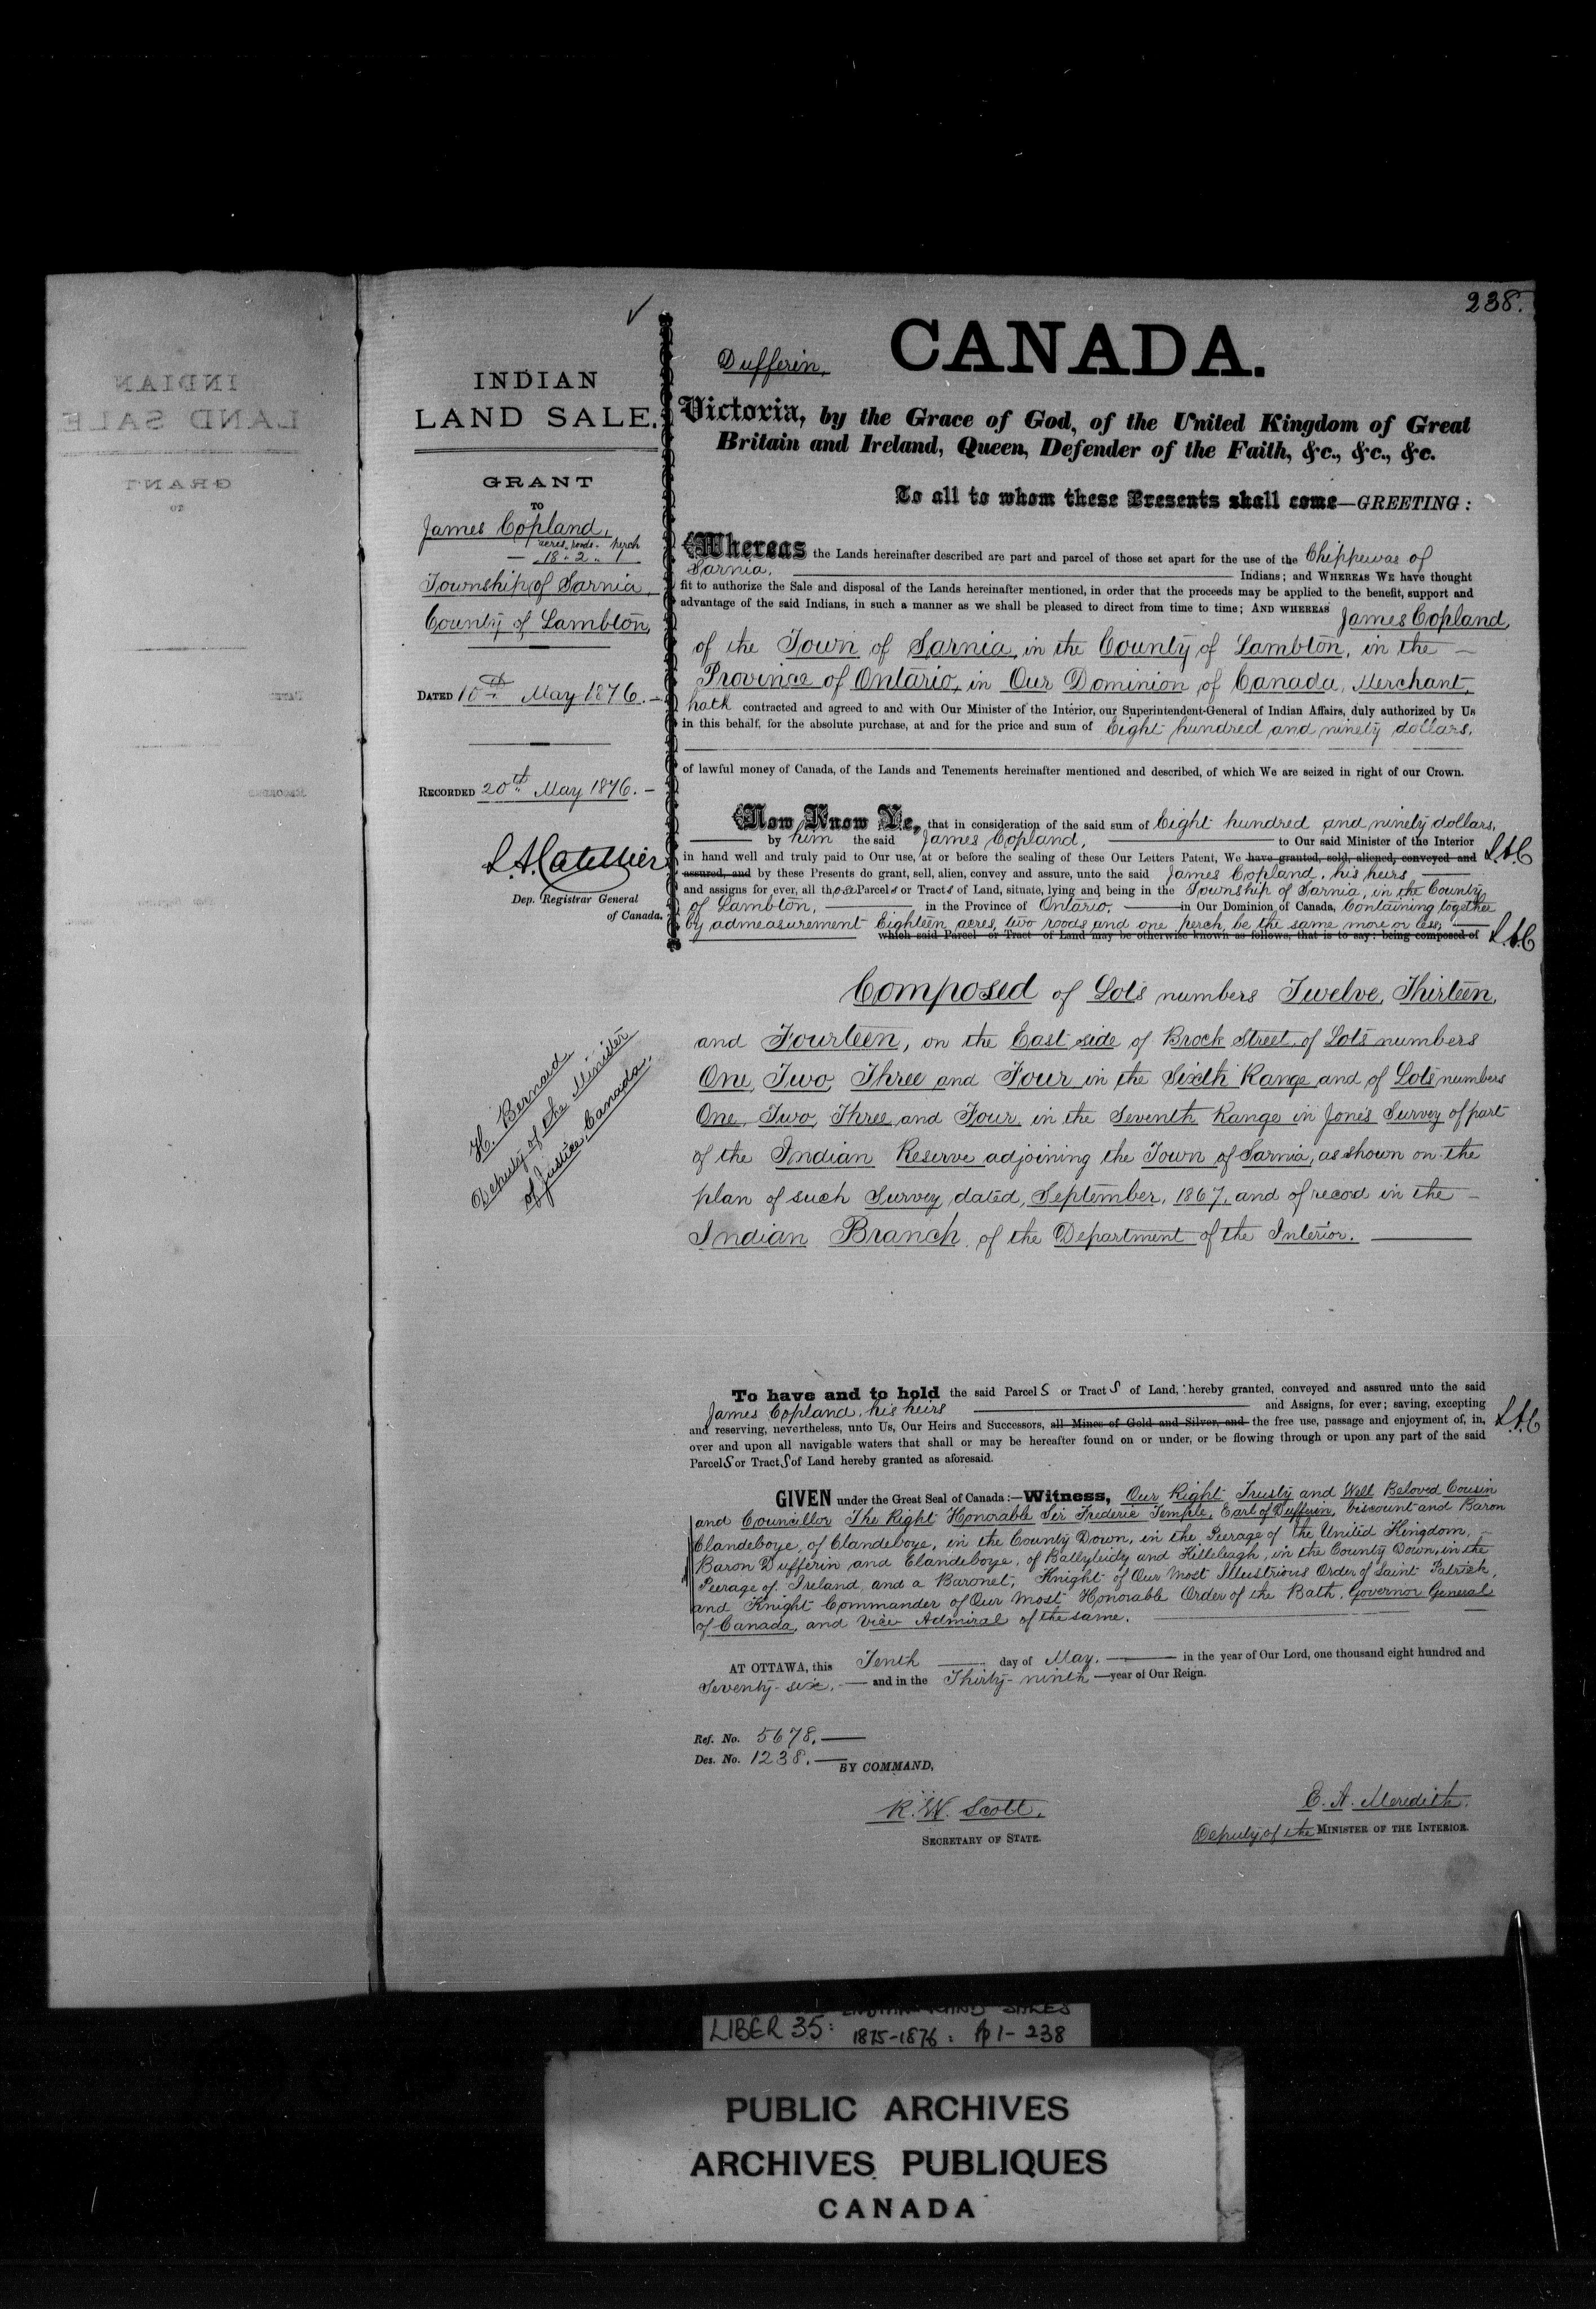 238.
CANADA.
Dufferin,
Victoria, by the Grace of God, of the United Kingdom of Great
Britain and Ireland, Queen, Defender of the Faith, &c., &c., &c.
To all to whom these Presents shall come—GREETING:
INDIAN
LAND SALE.
GRANT
TO
James Copland,
acres. roods. perch
18 . 2 . 1
Township of Sarnia,
County of Lambton,
DATED 10th May 1876.
RECORDED 20th May 1876.
L.A. Catellier
Dep. Registrar General
of Canada.
H. Bernard
Deputy of the Minister
of Justice, Canada.
Whereas the Lands hereinafter described are part and parcel of those set apart for the use of the Chippewas of
Sarnia, Indians; and WHEREAS WE have thought
fit to authorize the Sale and disposal of the Lands hereinafter mentioned, in order that the proceeds may be applied to the benefit, support and
advantage of the said Indians, in such a manner as we shall be pleased to direct from time to time; AND WHEREAS James Copland,
of the Town of Sarnia, in the County of Lambton, in the
Province of Ontario, in Our Dominion of Canada, Merchant,
hath contracted and agreed to and with Our Minister of the Interior, our Superintendent-General of Indian Affairs, duly authorized by Us
in this behalf, for the absolute purchase, at and for the price and sum of Eight hundred and ninety dollars,
of lawful money of Canada, of the Lands and Tenements hereinafter mentioned and described, of which We are seized in right of our Crown.
Now Know Ye, that in consideration of the said sum of Eight hundred and ninety dollars,
by him the said James Copland, to Our said Minister of the Interior
in hand well and truly paid to Our use, at or before the sealing of these Our Letters Patent, We have granted, sold, aliened, conveyed and L.A.C
assured, and by these Presents do grant, sell, alien, convey and assure, unto the said James Copland, his heirs
and assigns for ever, all those Parcels or Tracts of Land, situate, lying and being in the Township of Sarnia, in the County
of Lambton, in the Province of Ontario, in Our Dominion of Canada, Containing together
by admeasurement Eighteen acres, two roods and one perch, be the same more or less,
which said Parcel or Tract of Land may be otherwise known as follows, that is to say: being composed of L.A.C
Composed of Lots numbers Twelve, Thirteen,
and Fourteen, on the East side of Brock Street, of Lots numbers
One, Two, Three and Four in the Sixth Range and of Lots numbers
One, Two, Three and Four, in the Seventh Range in Jones Survey of part
of the Indian Reserve adjoining the Town of Sarnia, as shown on the
plan of such Survey, dated, September, 1867, and of record in the
Indian Branch of the Department of the Interior.
To have and to hold the said Parcels or Tracts of Land, hereby granted, conveyed and assured unto the said
James Copland, his heirs and Assigns, for ever; saving, excepting
and reserving, nevertheless, unto Us, Our Heirs and Successors, all Mines of Gold and Silver, and the free use, passage and enjoyment of, in, L.A.C
over and upon all navigable waters that shall or may be hereafter found on or under, or be flowing through or upon any part of the said
Parcels or Tracts of Land hereby granted as aforesaid.
GIVEN under the Great Seal of Canada:—Witness, Our Right Trusty and Well Beloved Cousin
and Councillor The Right Honorable Sir Frederic Temple, Earl of Dufferin, Viscount and Baron
Clandeboye, of Clandeboye, in the County Down, in the Peerage of the United Kingdom,
Baron Dufferin and Clandeboye, of Ballyleidy and Killeleagh, in the County Down, in the
Peerage of Ireland, and a Baronet, Knight of Our Most Illustrious Order of Saint Patrick,
and Knight Commander of Our Most Honorable Order of the Bath, Governor General
of Canada, and Vice Admiral of the same.
AT OTTAWA, this Tenth day of May, in the year of Our Lord, one thousand eight hundred and
Seventy-six, and in the Thirty-ninth year of Our Reign.
Ref. No. 5678.
Des. No. 1238.
BY COMMAND,
R. W. Scott.
SECRETARY OF STATE.
E. A. Meredith.
Deputy of the MINISTER OF THE INTERIOR.
INDIAN LAND SALES
LIBER 35: 1875-1876: pp 1-238
PUBLIC ARCHIVES
ARCHIVES PUBLIQUES
CANADA